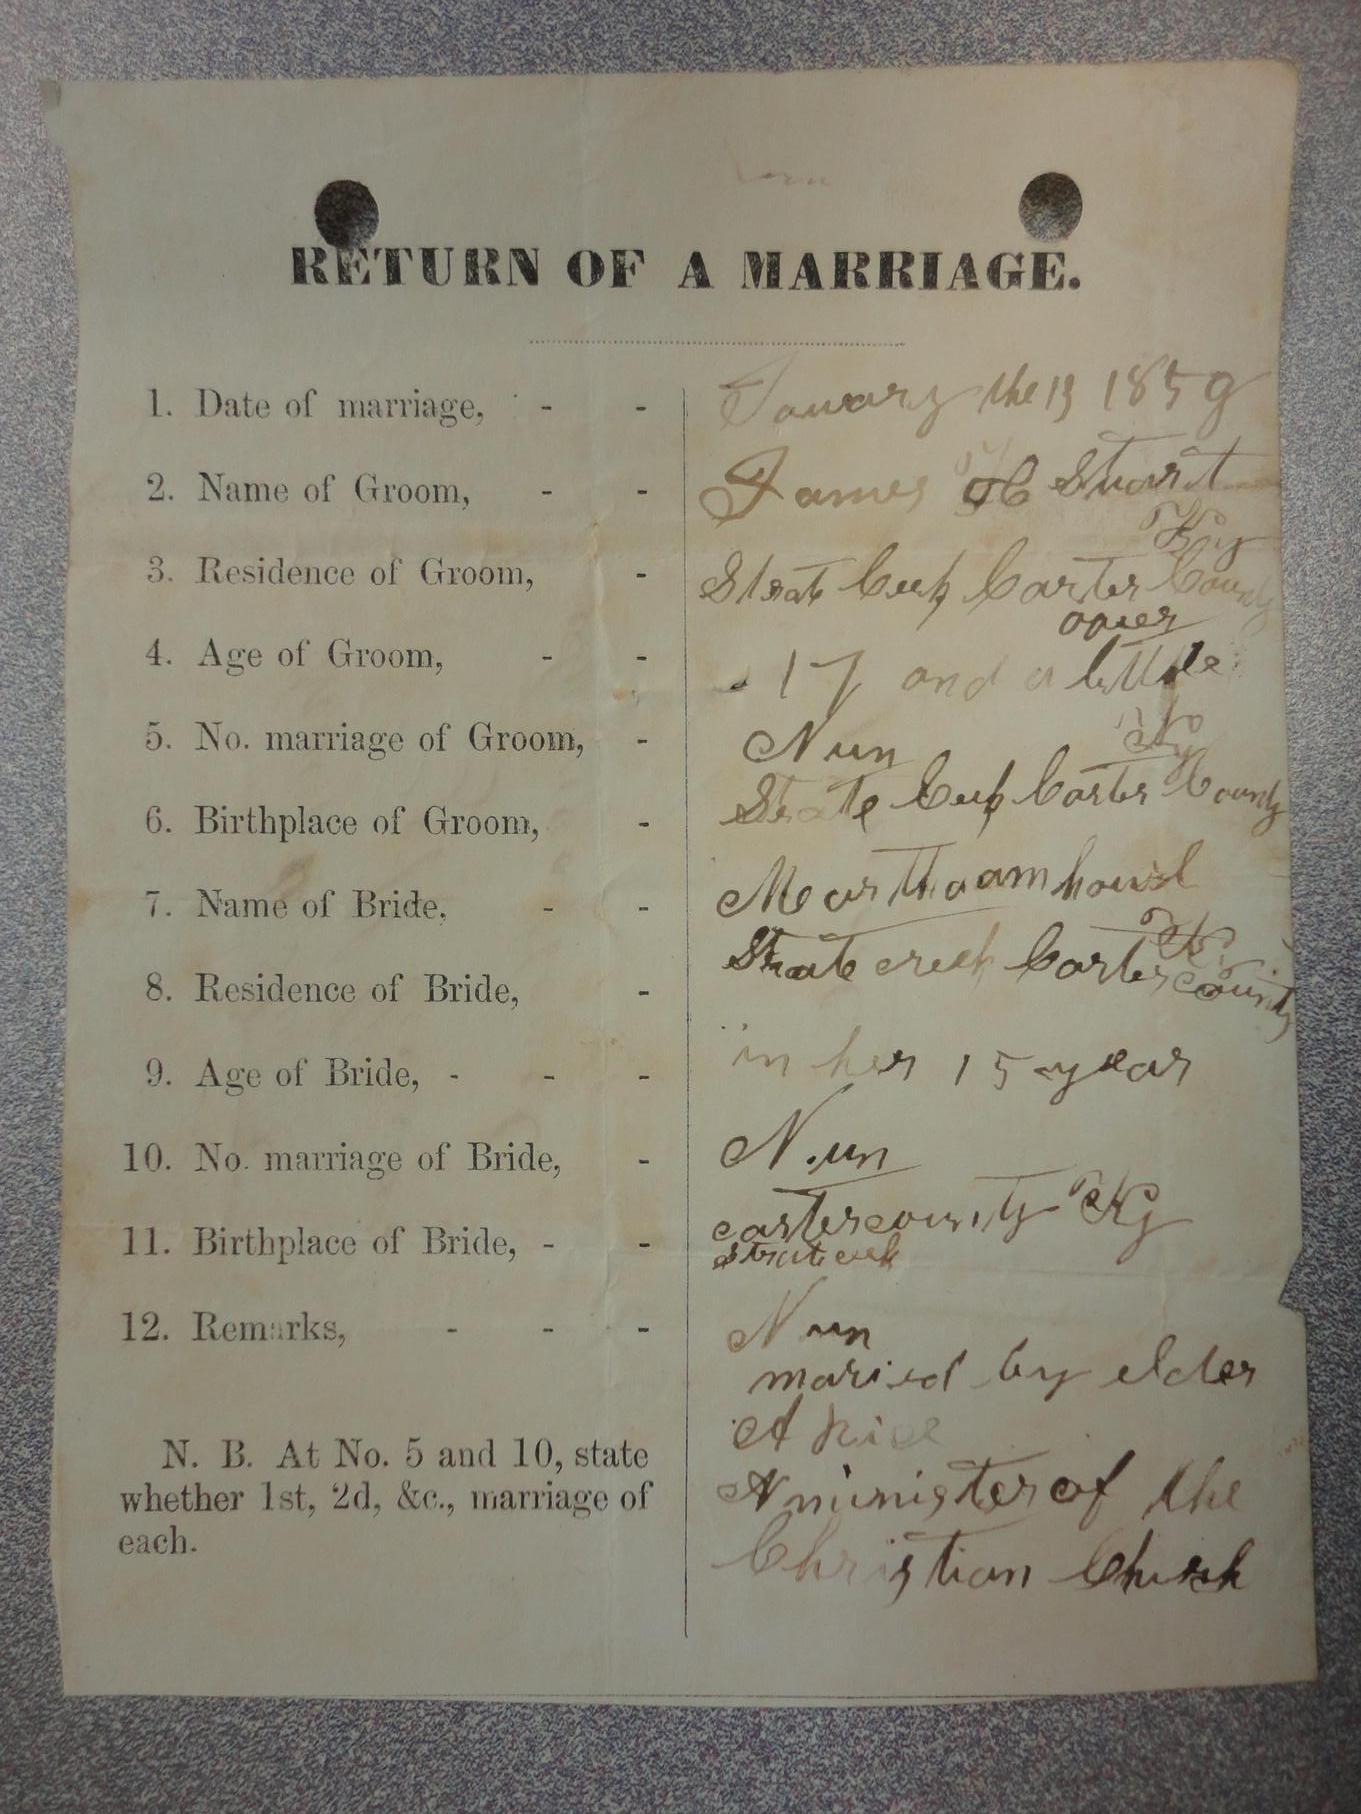 RETURN OF A MARRIAGE.
1. Date of marriage, - - January the 13 1859
2. Name of Groom, - - James H Stuart
Ky
3. Residence of Groom, - Strate Creek Carter County
over
4. Age of Groom, - - 17 and a little
5. No. marriage of Groom, - Nun
Ky
6. Birthplace of Groom, - Strate Creek Carter County
7. Name of Bride, - - Marthaam
Ky
8. Residence of Bride, - Strate creek Carter county
9. Age of Bride, - - - in her 15 year
10. No. marriage of Bride, - Nun
11. Birthplace of Bride, - - carter county Ky
Strate
12. Remarks, - - - Nun
maried by elder
A Rice
A minister of the
Christian Church
N. B. At No. 5 and 10, state
whether 1st, 2d, &c., marriage of
each.